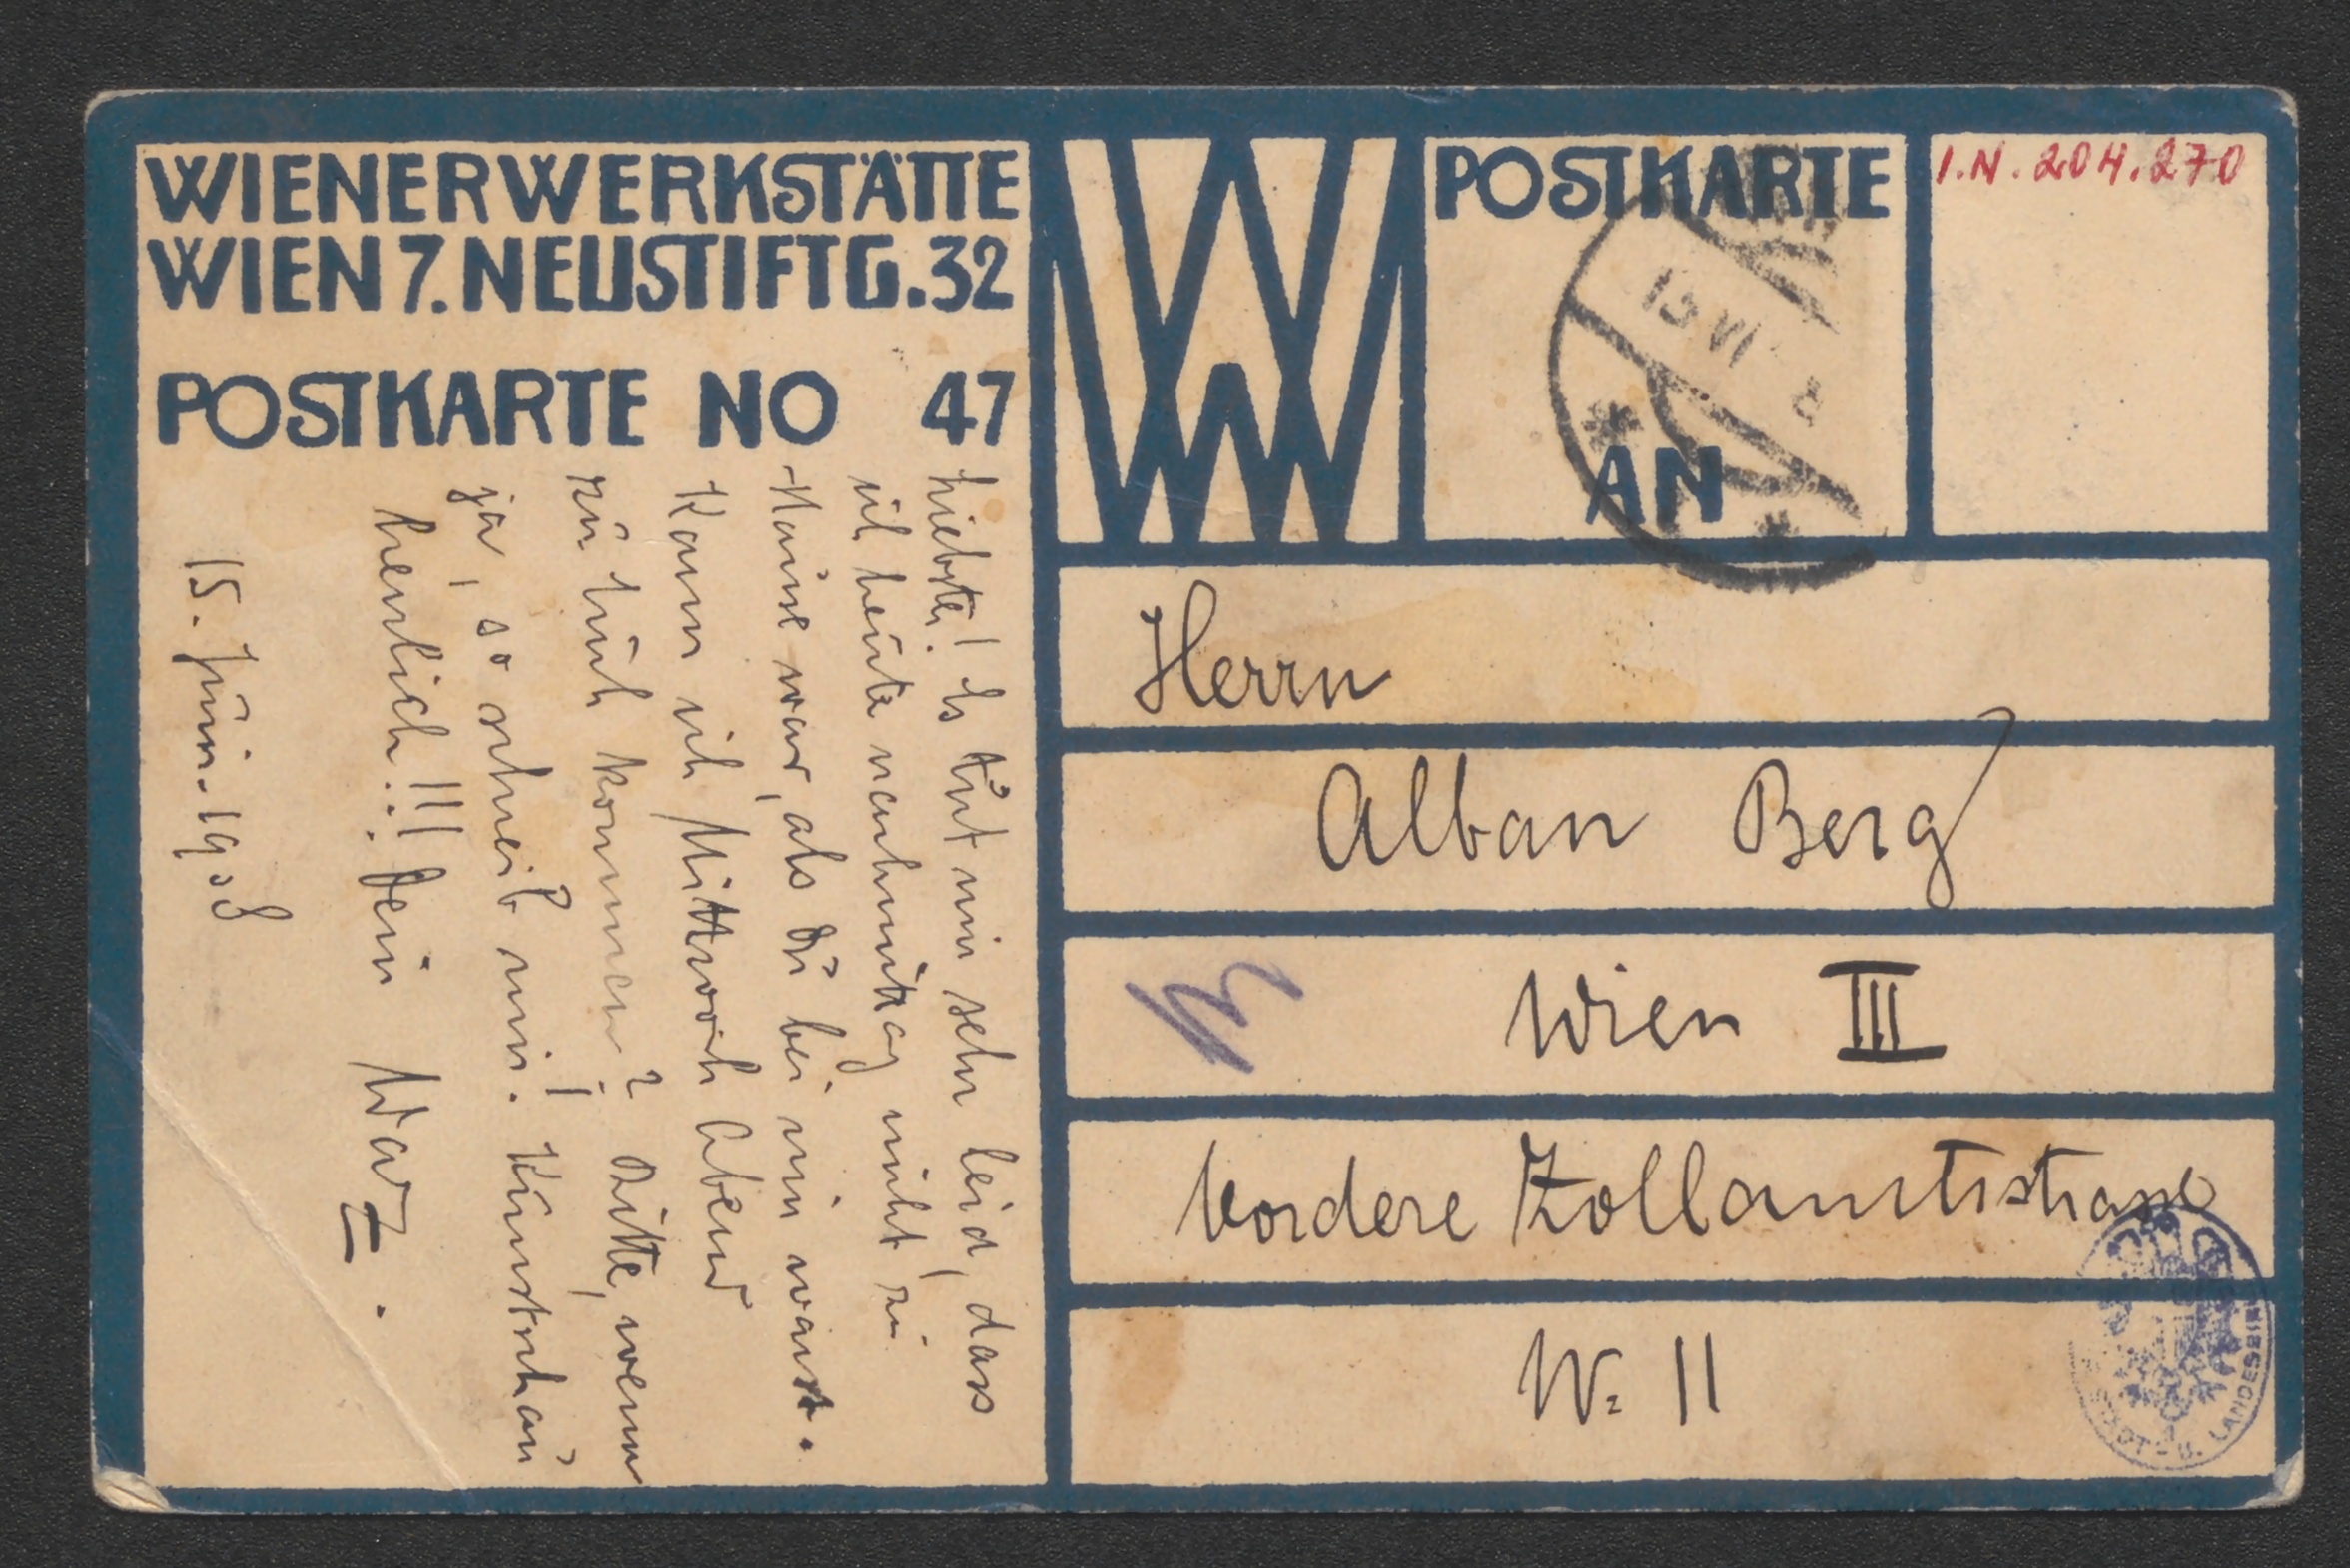 WIENER WERKSTÄTTE
WIEN 7. NEUSTIFTG. 32
POSTKARTE NO 47
POSTKARTE
I.N. 204.270
15 VI 8
AN
Herrn
Alban Berg
Wien III
Vordere Zollamtsstrasse
No 11
Liebster! Es tut mir sehr leid, dass
ich heute nachmittag nicht zu
Hause war, als Du bei mir warst.
Kann ich Mittwoch Abend
zu Euch kommen? Bitte, wenn
ja, so schreib mir! Kunstschau
herrlich!!! Dein Waz.
15. Juni. 1908
STADT- U. LANDESBIBL